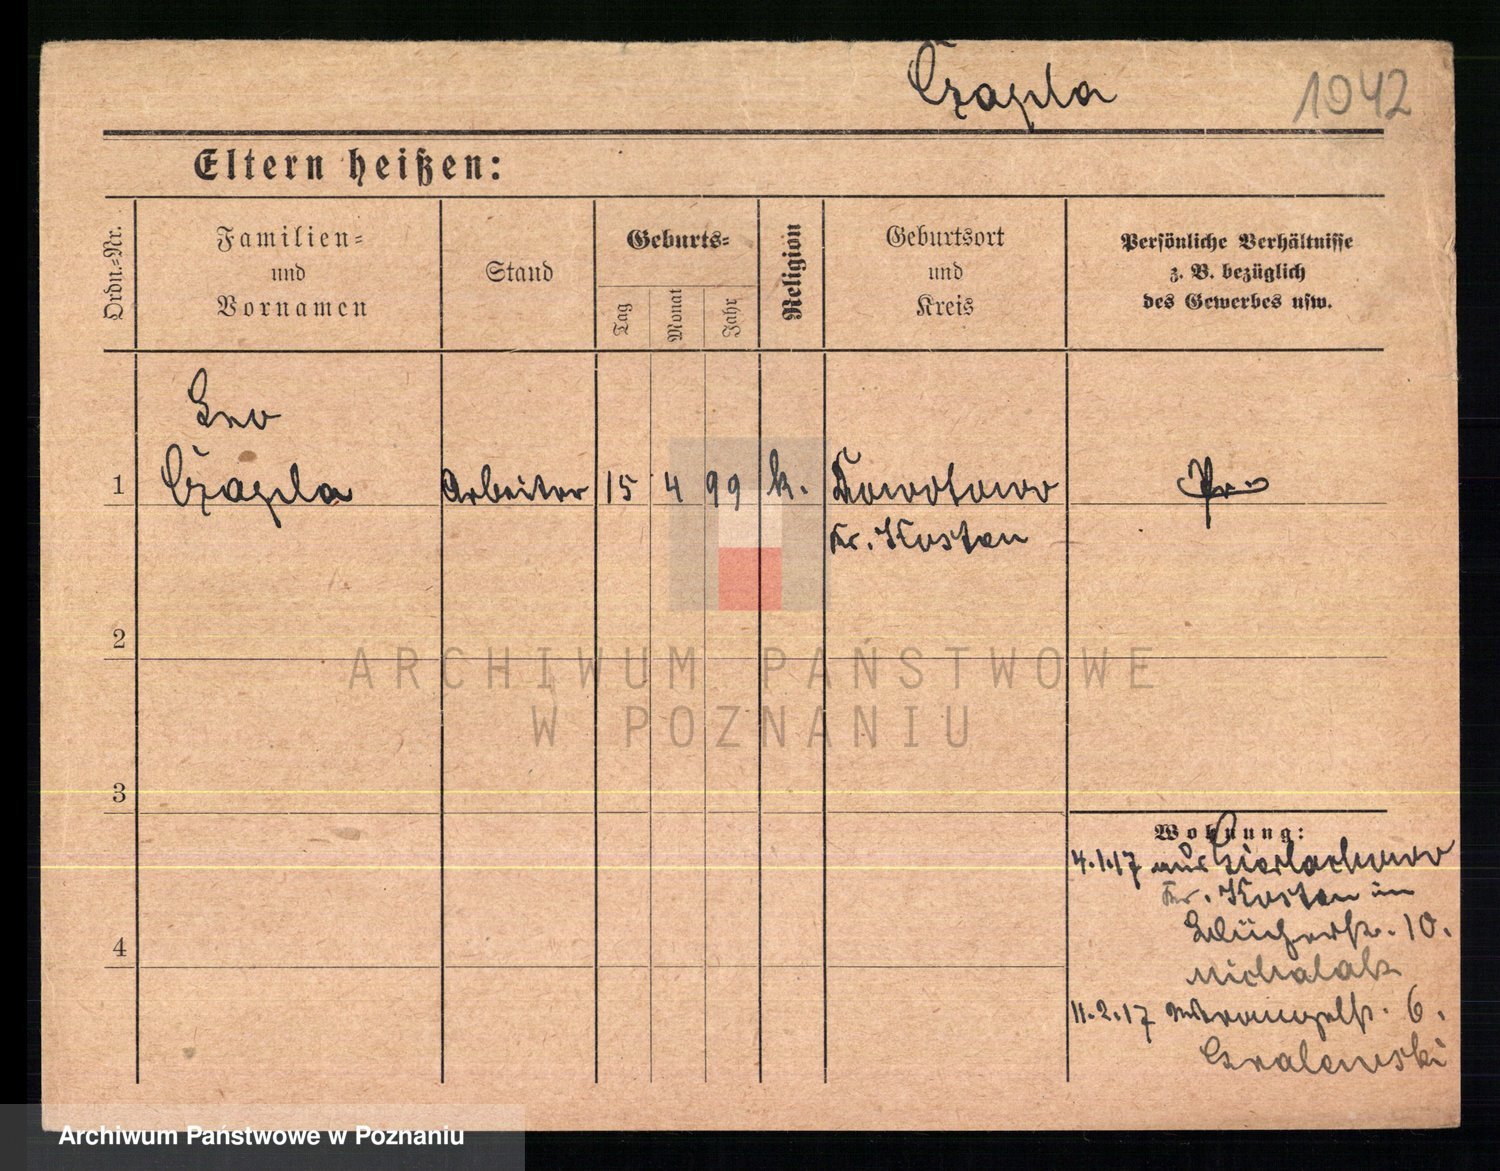 Czapla 1042
Eltern heißen:
Ordn.-Nr.
Familien-
und
Vornamen
Stand
Geburts-
Tag
Monat
Jahr
Religion
Geburtsort
und
Kreis
Persönliche Verhältnisse
z. B. bezüglich
des Gewerbes usw.
Leo
1 Czapla Arbeiter 15 4 99 k. Pr.
Kr. Kosten
2
ARCHIWUM PAŃSTWOWE
W POZNANIU
3
Wohnung:
4.1.17 aus Zierlachowo
Kr. Kosten in
Blücherstr. 10.
Michalak
4
11.2.17 Wrangelstr. 6.
Gralewski
Archiwum Państwowe w Poznaniu